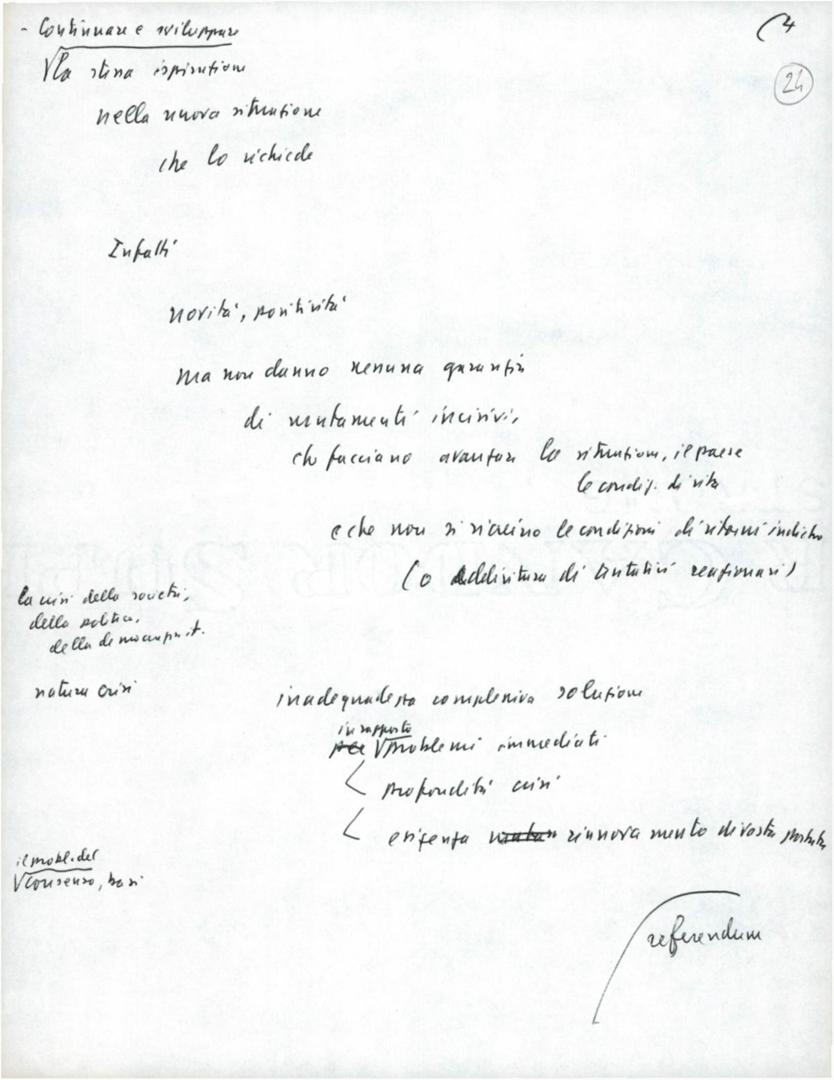 - Continuare e sviluppare
(4
24
la stessa ispirazione
nella nuova situazione
che lo richiede
Infatti
novità, positività
ma non danno nessuna garanzia
di mutamenti incisivi,
che facciano avanzare la situazione, il paese
le condiz. di vita
e che non si ricreino le condizioni di ritorni indietro
(o addirittura di tentativi reazionari)
la crisi della società,
della politica,
della democrazia it.
natura crisi
inadeguatezza complessiva soluzione
in rapporto
per problemi immediati
< profondità crisi
< esigenza rinnovamento di vasta portata
il probl. del
consenso, basi
referendum